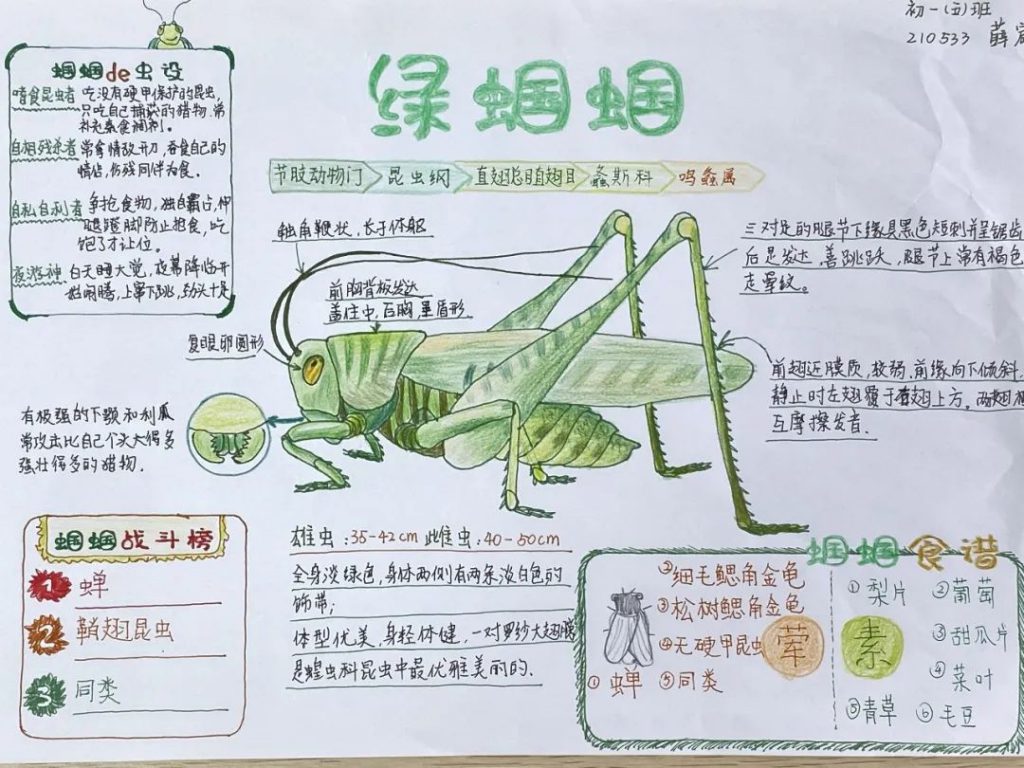 初一(五)班
210533 薛
绿蝈蝈
节肢动物门 昆虫纲 直翅总目直翅目 螽斯科 鸣螽属
蝈蝈de虫设
嗜食昆虫者 吃没有硬甲保护的昆虫,
只吃自己捕获的猎物,常
补充素食调剂。
自相残杀者 常拿情敌开刀,吞食自己的
情侣,伤残同伴为食。
自私自利者 争抢食物,独自霸占,伸
腿蹬脚防止抢食,吃
饱了才让位。
夜游神 白天睡大觉,夜幕降临开
始闹腾,上窜下跳,劲头十足
触角鞭状,长于体躯
前胸背板发达
盖住中,后胸,呈盾形.
复眼卵圆形
三对足的腿节下缘具黑色短刺并呈锯齿
后足发达,善跳跃,腿节上常有褐色
走晕纹。
前翅近膜质,较弱,前缘向下倾斜,
静止时左翅覆于右翅上方,两翅
互摩擦发音.
有极强的下颚和利爪
常攻击比自己个头大得多
强壮得多的猎物.
蝈蝈战斗榜
1 蝉
2 鞘翅昆虫
3 同类
雄虫:35-42cm 雌虫:40-50cm
全身淡绿色,身体两侧有两条淡白色的
饰带;
体型优美,身轻体健,一对罗纱大翅膀
是蝗虫科昆虫中最优雅美丽的.
蝈蝈食谱
荤
①蝉
②细毛鳃角金龟
③松树鳃角金龟
④无硬甲昆虫
⑤同类
素
①梨片 ②葡萄
③甜瓜片
④菜叶
⑤青草 ⑥毛豆